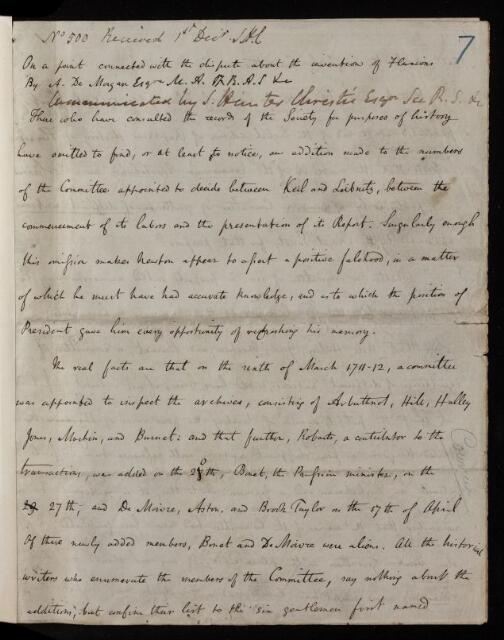 No 500 Received 1st Decr S.H.C
7
On a point connected with the dispute about the invention of Fluxions
By A. De Morgan Esqre M.A. F.R.A.S &c
Communicated by S. Hunter Christie Esqre Sec R.S. &c
Those who have consulted the records of the Society for purposes of history
have omitted to find, or at least to notice, an addition made to the numbers
of the Committee appointed to decide between Keil and Leibnitz, between the
commencement of its labors and the presentation of its Report. Singularly enough
this omission makes Newton appear to assert a positive falsehood, in a matter
of which he must have had accurate knowledge, and as to which the position of
President gave him every opportunity of refreshing his memory.
The real facts are that on the sixth of March 1711-12, a committee
was appointed to inspect the archives, consisting of Arbuthnot, Hill, Halley
Jones, Machin, and Burnet: and that further, Robarts, a contributor to the
transactions, was added on the 20th, Bonet, the Prussian minister, on the
27th, and De Moivre, Aston, and Brook Taylor on the 17th of April
Of these newly added members, Bonet and De Moivre were aliens. All the historical
writers who enumerate the members of the Committee, say nothing about the
additions, but confine their list to the six gentlemen first named